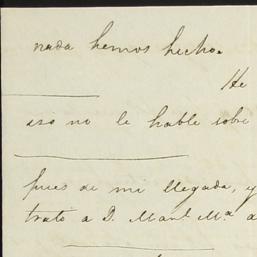 nada hemos hecho.
He
eso no le hable sobre
pues de mi llegada, y
trato a D. Manl. Ma. a